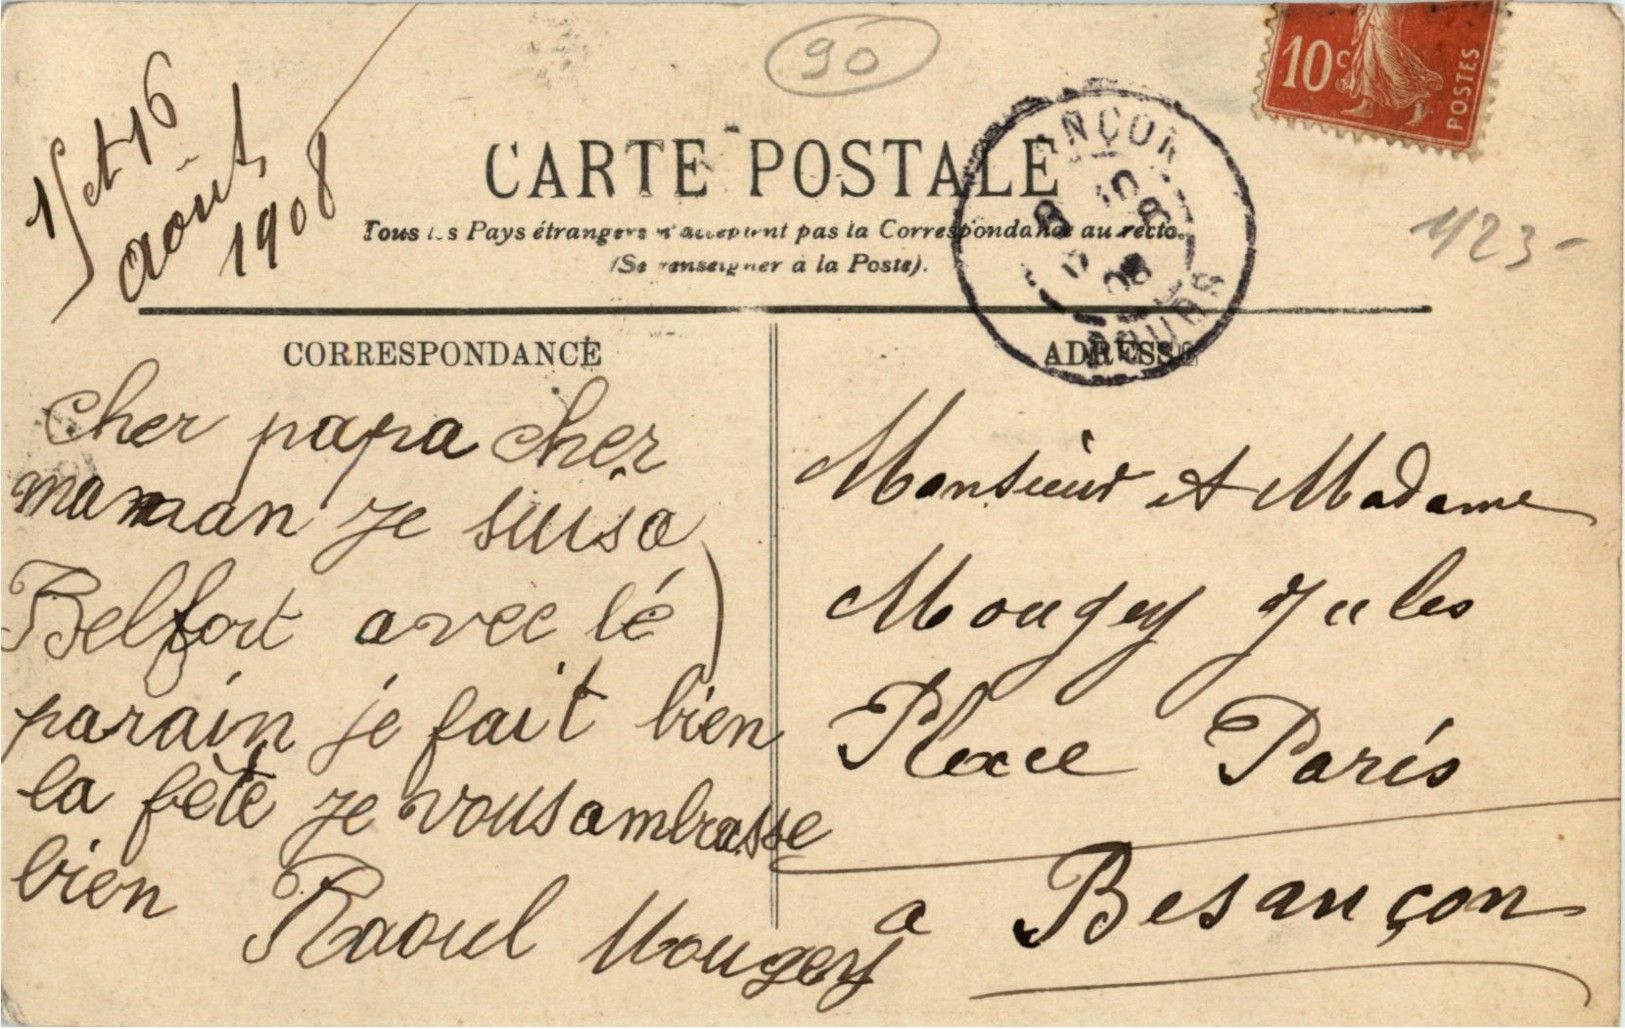 90
10c
POSTES
15 et 16
août
1908
CARTE POSTALE
Tous les Pays étrangers n'acceptent pas la Correspondance au recto.
(Se renseigner à la Poste).
1123-
CORRESPONDANCE
ADRESSE
Cher papa cher
maman je suis a
Belfort avec lé
parain je fait bien
la fête je vous ambrasse
bien
Raoul Mougey
Monsieur et Madame
Mougey Jules
Place Paris
a Besançon